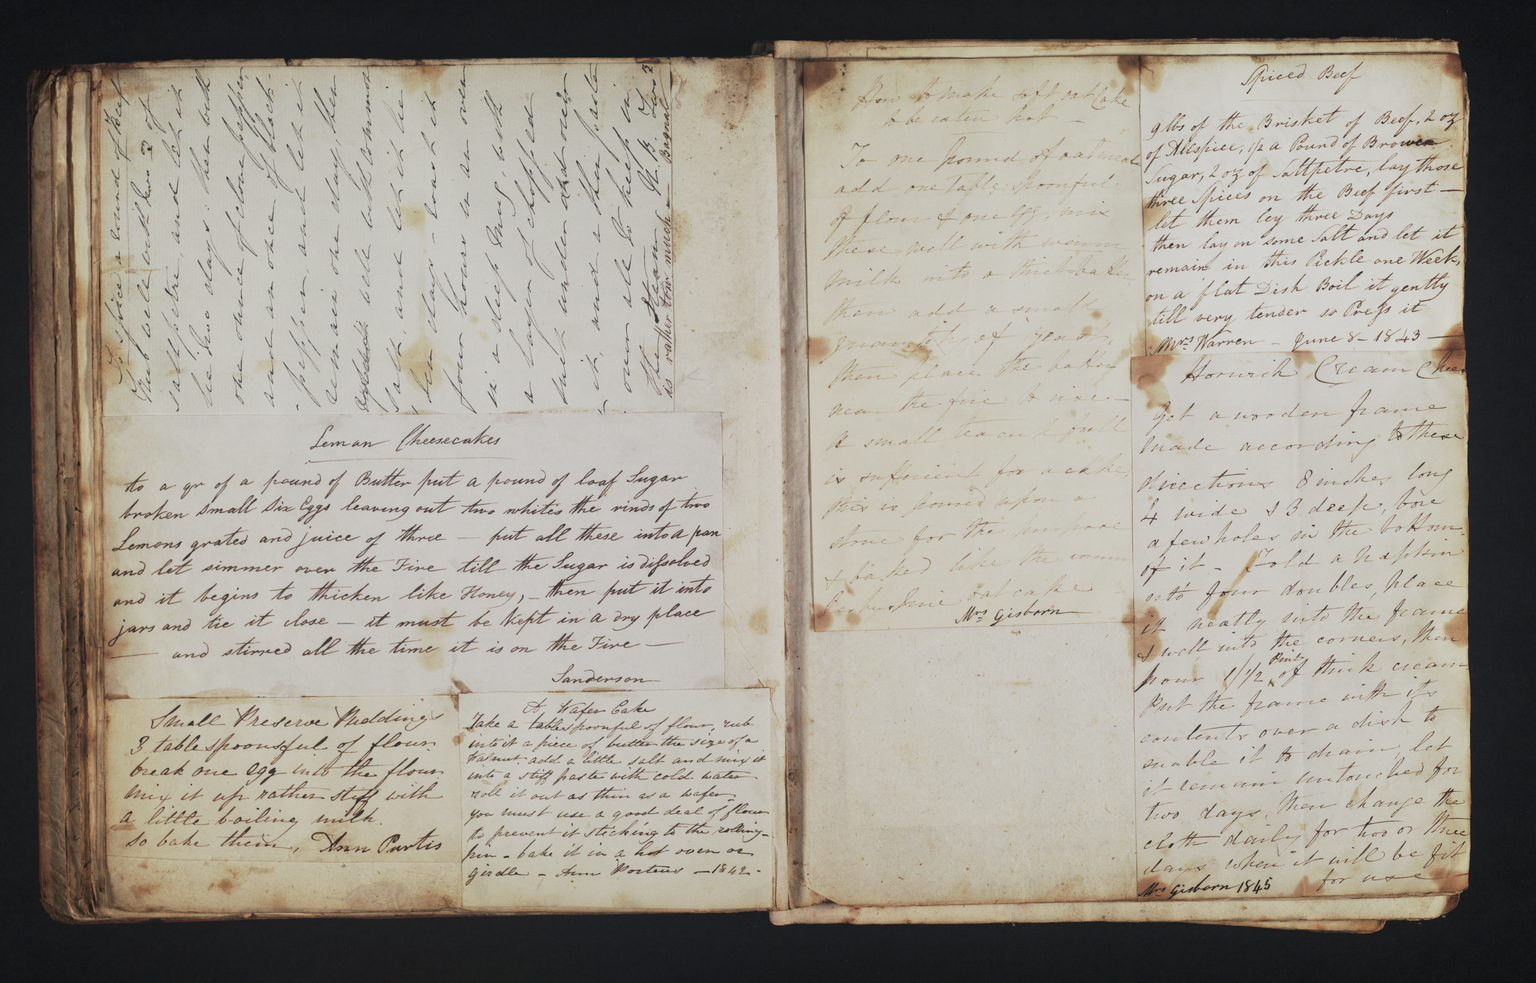 To spice a round of Beef
Rub well with two 3 of
saltpetre, and let it
lie two days; then rub
one ounce of clove pepper
and an once of black
pepper, and let it
remain one day, then
well with common
salt and let it lie
ten days - bake it
four hours in an oven
in a deep mug, with
a layer of chopped
suet under and over
it and a thin paste
over all to keep in
the steam N. B. Two 3
is rather too much
Lemon Cheesecakes
to a qr of a pound of Butter put a pound of loaf Sugar
broken small six Eggs leaving out two whites the rinds of two
Lemons grated and juice of three — put all these into a pan
and let simmer over the Fire till the Sugar is dissolved
and it begins to thicken like Honey, – then put it into
jars and tie it close – it must be kept in a dry place
— and stirred all the time it is on the Fire —
Sanderson
Small Preserve Puddings
3 tablespoonsful of flour
break one egg into the flour
mix it up rather stiff with
a little boiling milk.
so bake them, Ann Purtis
A Wafer Cake
Take a tablespoonful of flour, rub
into it a piece of butter the size of a
Walnut add a little salt and mix it
into a stiff paste with cold water
roll it out as thin as a wafer,
you must use a good deal of flour
to prevent it sticking to the rolling-
pin - bake it in a hot oven or
girdle – Ann Porteus — 1842 -
How to make soft oat Cake
to be eaten hot —
To one pound of oatmeal
add one table spoonful
of flour & one egg, mix
these well with warm
milk into a thick batter,
then add a small
quantity of yeast,
then place the batter
near the fire to rise —
a small tea cup full
is sufficient for a cake,
this is poured upon a
stove for the purpose
& baked like the common
Derbyshire oat cake
Mrs Gisborn
Spiced Beef
9 lbs of the Brisket of Beef, 2 oz
of Allspice, 1/2 a Pound of Brown
Sugar, 2 oz of Saltpetre, lay those
three Spices on the Beef first —
let them ley three Days
then lay on some Salt and let it
remain in this Pickle one Week,
on a flat Dish Boil it gently
till very tender so Press it
Mrs Warren – June 8 – 1843 —
Cream Chee
Get a wooden frame
made according to these
directions 8 inches long
4 wide & 3 deep, bore
a few holes in the bottom
of it – Fold a napkin
into four doubles, place
it neatly into the frame
& well into the corners, then
pour 1 1/2 Pints of thick cream
Put the frame with its
contents over a dish to
enable it to drain, let
it remain untouched for
two days, then change the
cloth daily for two or three
days when it will be fit
for use
Mrs Gisborn 1845